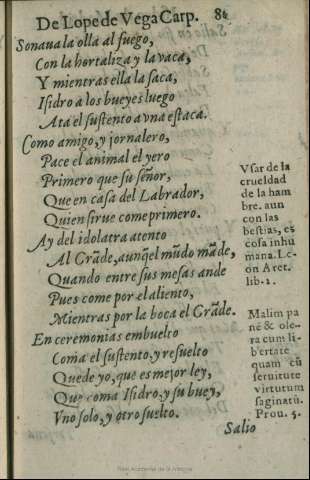 De Lope de Vega Carp. 86
Sonaua la olla al fuego,
Con la hortaliza y la vaca,
Y mientras ella la saca,
Isidro a los bueyes luego
Ata el sustento a vna estaca.
Como amigo, y jornalero,
Pace el animal el yero
Primero que su señor,
Que en casa del Labrador,
Quien sirue come primero.
Ay del idolatra atento
Al Grãde, aunq̃ el mũdo mãde,
Quando entre sus mesas ande
Pues come por el aliento,
Mientras por la boca el Grãde.
En ceremonias embuelto
Coma el sustento, y resuelto
Quede yo, que es mejor ley,
Que coma Isidro, y su buey,
Vno solo, y otro suelto.
Vsar de la
crueldad
de la ham
bre. aun
con las
bestias, es
cosa inhu
mana. Le-
on Aret.
lib. 1.
Malim pa
nẽ & ole-
ra cum li-
bertate
quam cũ
seruitute
virtutum
saginatũ.
Prou. 5.
Salio
Real Academia de la Historia